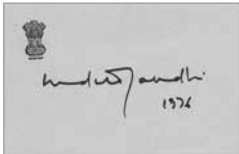 Indira Gandhi
1976